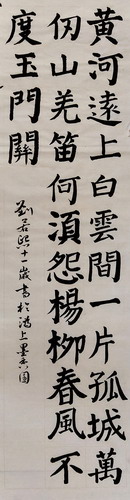 黃河遠上白雲間一片孤城萬
仞山羌笛何須怨楊柳春風不
度玉門關
劉若熙十一歲書於鴻上墨香園